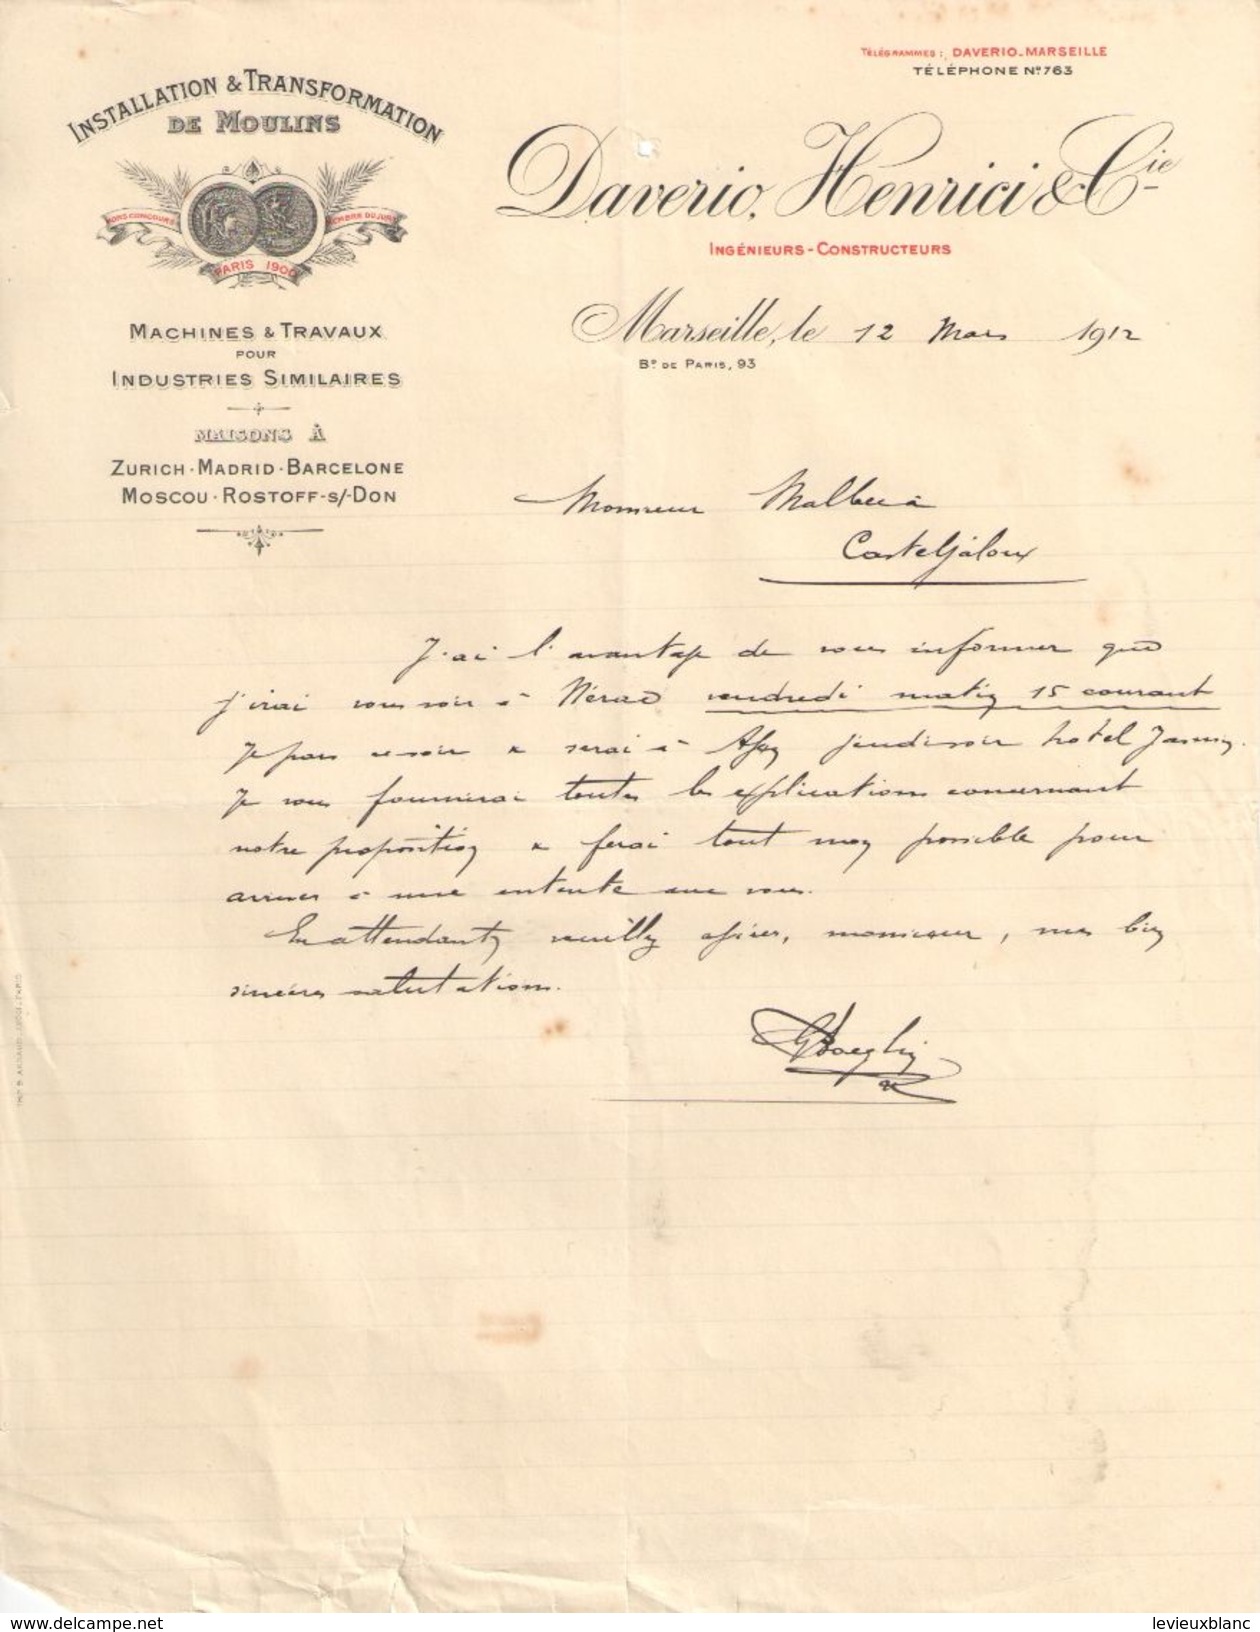 TÉLÉGRAMMES : DAVERIO-MARSEILLE
TÉLÉPHONE Nº 763
INSTALLATION & TRANSFORMATION
DE MOULINS
HORS CONCOURS
MEMBRE DU JURY
PARIS 1900
MACHINES & TRAVAUX
POUR
INDUSTRIES SIMILAIRES
MAISONS À
ZURICH · MADRID · BARCELONE
MOSCOU · ROSTOFF-S/-DON
Daverio, Henrici & Cie
INGÉNIEURS - CONSTRUCTEURS
Marseille, le 12 Mars 1912
Bd DE PARIS, 93
Monsieur Malbec à
Casteljaloux
J'ai l'avantage de vous informer que
j'irai vous voir à Nérac vendredi matin 15 courant
Je pars ce soir & serai à Agen jeudi soir hotel Jasmin.
Je vous fournirai toutes les explications concernant
notre proposition & ferai tout mon possible pour
arriver à une entente avec vous.
En attendant, veuillez agréer, monsieur, mes bien
sincères salutations.
IMP. B. ARNAUD, LYON-PARIS
levieuxblanc